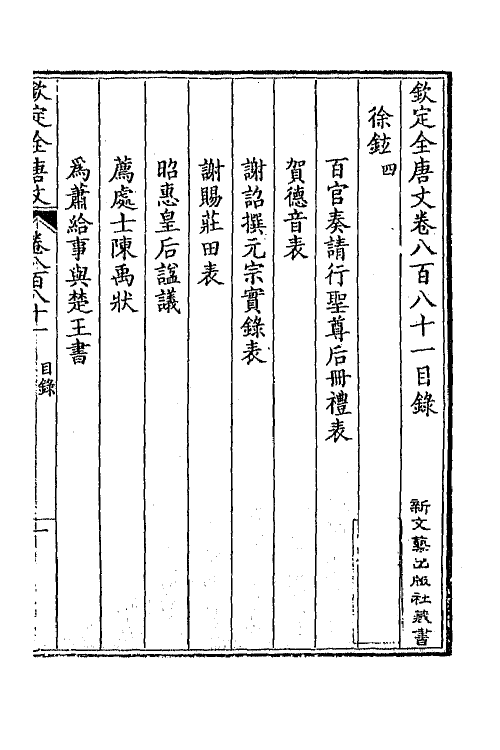 欽定全唐文卷八百八十一目錄
新文藝出版社藏書
徐鉉四
百官奏請行聖尊后冊禮表
賀德音表
謝詔撰元宗實錄表
謝賜莊田表
昭惠皇后諡議
薦處士陳禹狀
爲蕭給事與楚王書
欽定全唐文
卷八百八十一
目錄
一